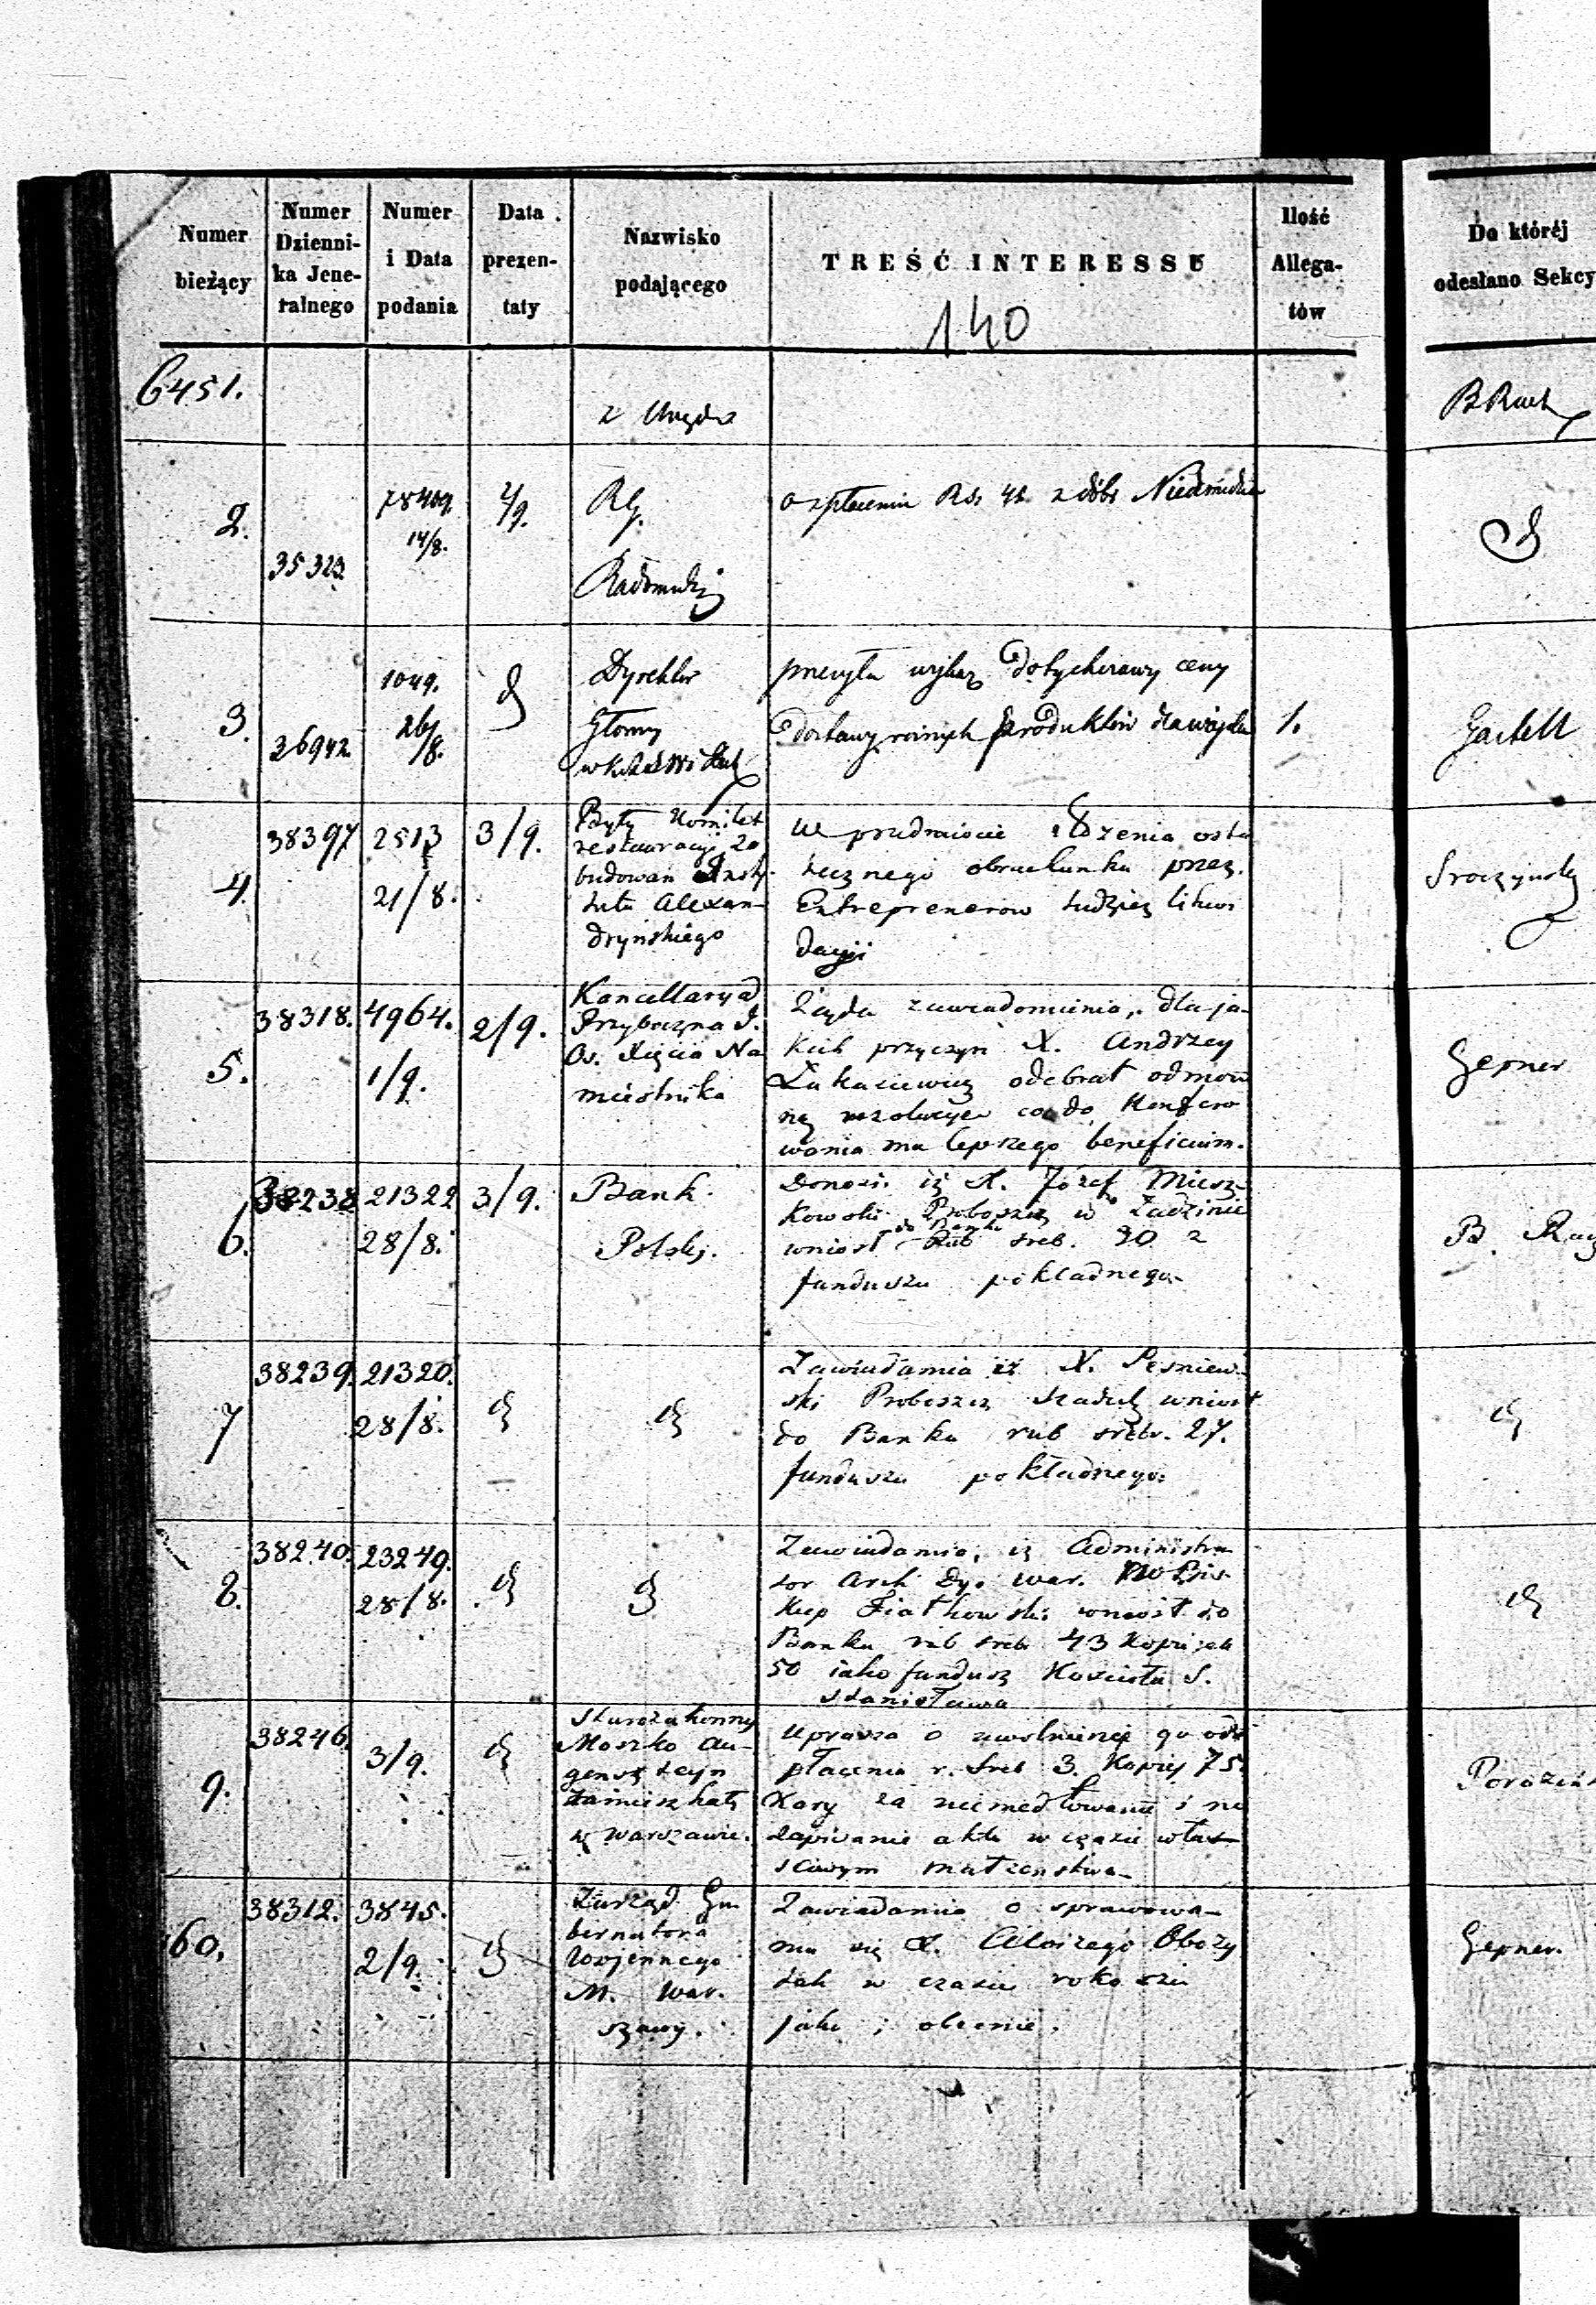 Numer bieżący
Numer Dzienni-ka Jene-ralnego
Numer i Data podania
Data prezen-taty
Nazwisko podającego
TREŚĆ INTERESSU
Ilość Allega-tów
Do któréj odesłano Sekcy
140
6451.
z Urzędu
2.
35323
78409.
14/8.
2/9.
RG.
Radomski
o zpłacenie Rsr 46 z dóbr
3.
36942.
1049.
26/8.
Dyrektor
Główny
przesyła wykaz dotychczasowy ceny
dostawy różnych produktów
1.
4.
38397
2513
21/8.
3/9.
Były Komitet
restauracyi za
budowań Insty-
tutu Alexan-
dryńskiego
W przedmiocie złożenia osta
tecznego obrachunku przez
Entreprenerow tudzież likwi
dacyi
5.
38318.
4964.
1/9.
2/9.
Kancellarya
Przyboczna J.
Os. Xięcia Na
miestnika
Żąda zawiadomienia, dla ja-
kich przyczyn X. Andrzey
Łukasiewicz odebrał odmow
ną rezolucye co do Konfero
wania mu lepszego beneficium.
Gepner
6.
38238
21322
28/8.
3/9.
Bank
Polski.
Donosi iż X. Józef Miesz-
kowski Proboszcz w
do Banku
wniosł Rub sreb. 90 z
funduszu pokładnego
B.
7
38239.
21320.
28/8.
Zawiadamia iż X.
ski Proboszcz Szadek wniosł
do Banku rub srebr. 27.
funduszu pokładnego.
8.
38240.
23249.
28/8.
Zawiadamia, iż Administra
tor Arch Dy. War.
kup Fiatkowski wniosł do
Banku rub sreb 43 kopiejek
50 iako fundusz Kościoła S.
Stanisława
9.
38246.
3/9.
Starozakonny
Moszko Au-
gensztejn
zamieszkały
w Warszawie.
Uprasza o uwolnienie go od
płacenia r. Sreb 3. Kopiej 75.
Kary za niemeldowanie i nie
zapisanie aktu w czasie właś-
ściwym małżeństwa
60.
38312.
3845.
2/9.
Zarząd Gu
bernatora
Wojennego
M. War.
szawy.
Zawiadamia o sprawowa-
niu się X. Aloizego
tak w czasie rokoszu
jako i obecnie.
Gepner.